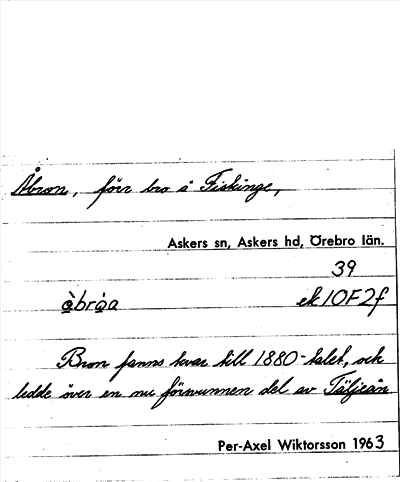 Åbron, förr bro å Fiskinge,
Askers sn, Askers hd, Örebro län.
39
åbròa ek 10F2f
Bron fanns kvar till 1880-talet, och
ledde över en nu försvunnen del av Täljeån
Per-Axel Wiktorsson 1963